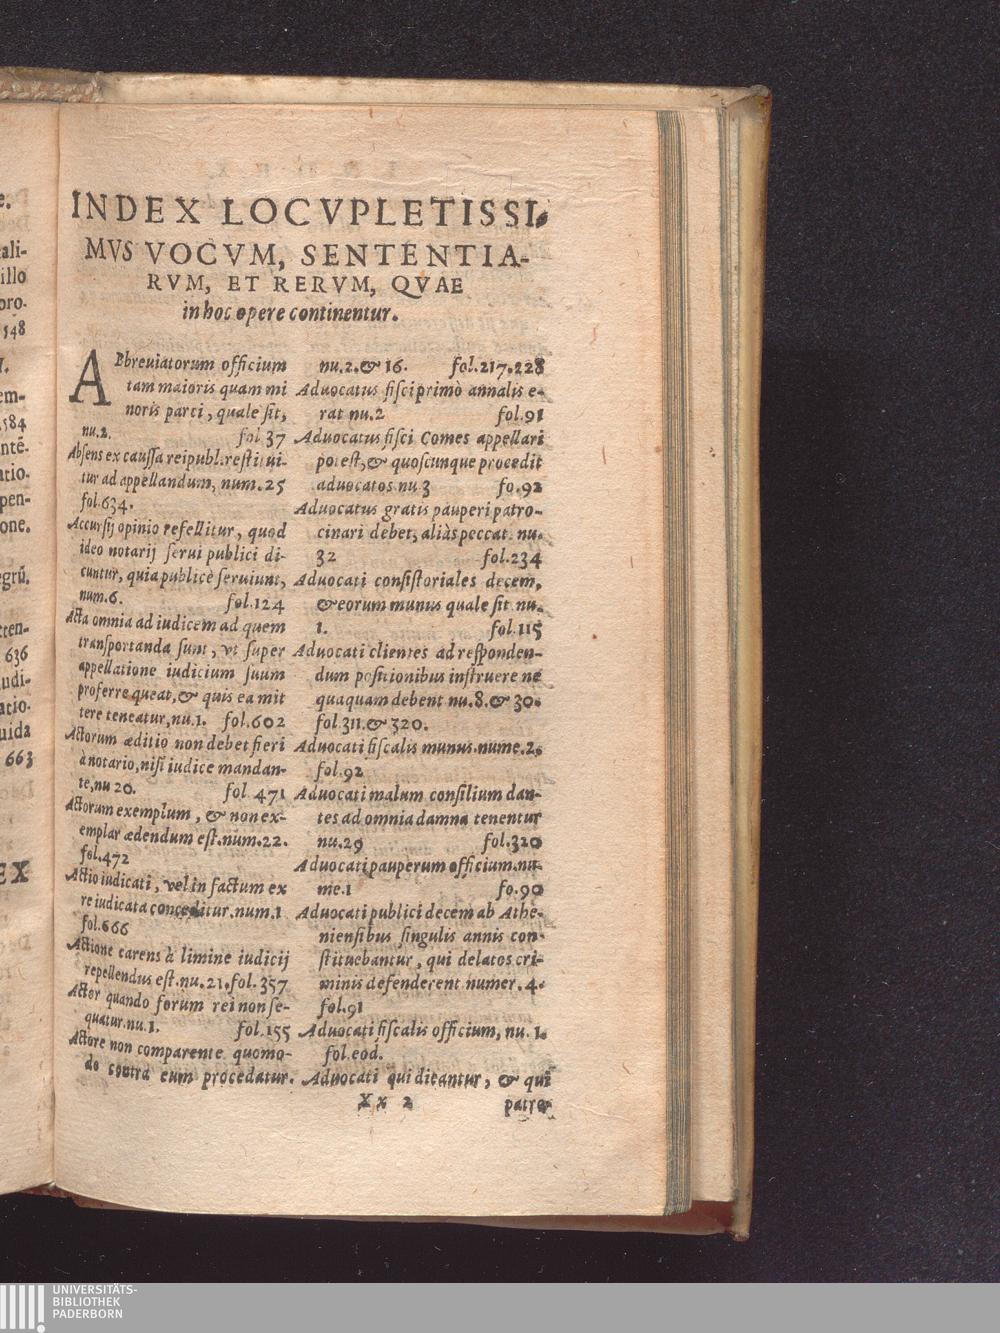 INDEX LOCVPLETISSI-
MVS VOCVM, SENTENTIA-
RVM, ET RERVM, QVAE
in hoc opere continentur.
ABbreuiatorum officium
tam maioris quam mi
noris parci, quale sit,
nu.2. fol 37
Absens ex caussa reipubl. restitui-
tur ad appellandum, num. 25
fol. 634.
Accursij opinio refellitur, quod
ideo notarij serui publici di-
cuntur, quia publicè seruiunt,
num. 6. fol. 124
Acta omnia ad iudicem ad quem
transportanda sunt, vt super
appellatione iudicium suum
proferre queat, & quis ea mit
tere teneatur, nu. 1. fol. 602
Actorum æditio non debet fieri
à notario, nisi iudice mandan-
te, nu 20. fol 471
Actorum exemplum, & non ex-
emplar ædendum est. num. 22.
fol. 472
Actio iudicati, vel in factum ex
re iudicata conceditur. num. 1
fol. 666
Actione carens à limine iudicij
repellendus est. nu. 21. fol. 357
Actor quando forum rei non se-
quatur. nu. 1. fol. 155
Actore non comparente quomo-
do contra eum procedatur.
nu. 2. & 16. fol. 217. 228
Aduocatus fisci primò annalis e-
rat nu. 2 fol. 91
Aduocatus fisci Comes appellari
potest, & quoscunque procedit
aduocatos nu 3 fo. 92
Aduocatus gratis pauperi patro-
cinari debet, aliàs peccat. nu.
32 fol. 234
Aduocati consistoriales decem,
& eorum munus quale sit nu.
1. fol. 115
Aduocati clientes ad responden-
dum positionibus instruere ne
quaquam debent nu. 8. & 30.
fol. 311. & 320.
Aduocati fiscalis munus. nume. 2.
fol. 92
Aduocati malum consilium dan-
tes ad omnia damna tenentur
nu. 29 fol. 320
Aduocati pauperum officium. nu-
me. 1 fo. 90
Aduocati publici decem ab Athe-
niensibus singulis annis con-
stituebantur, qui delatos cri-
minis defenderent numer. 4.
fol. 91
Aduocati fiscalis officium, nu. 1.
fol. eod.
Aduocati qui dicantur, & qui
Xx 2 patro-
e.
ali-
illo
oro.
548
em-
584
atio.
pen-
one.
egrū.
656
udi-
atio.
uida
663
EX
UNIVERSITÄTS-
BIBLIOTHEK
PADERBORN